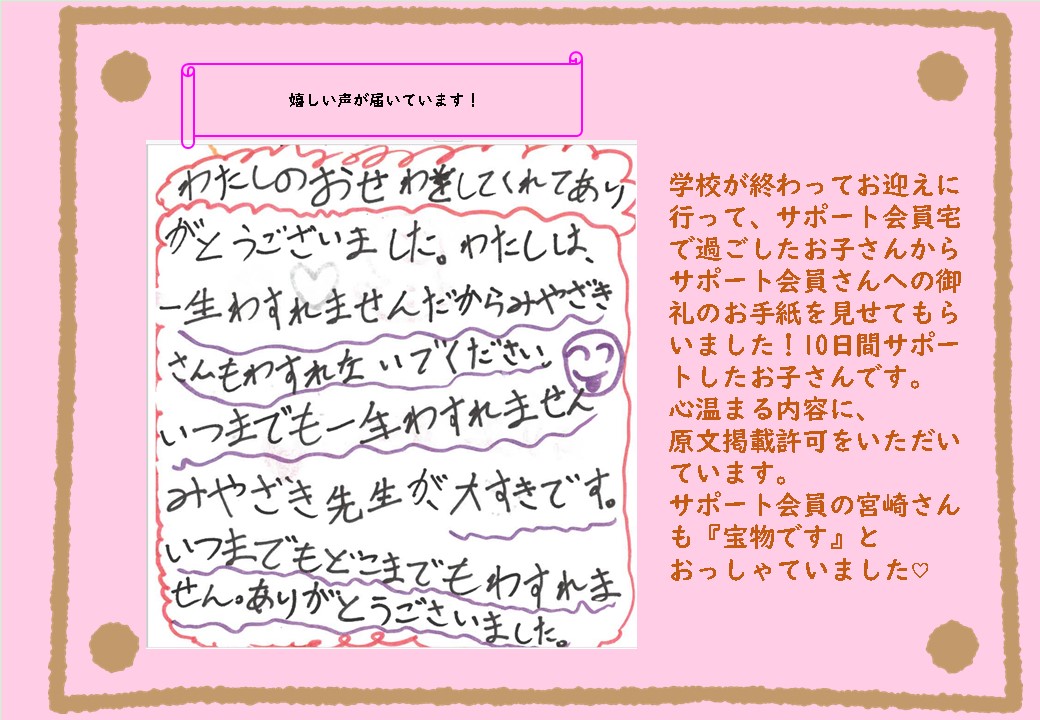 嬉しい声が届いています！
わたしのおせわをしてくれてあり
がとうございました。わたしは、
一生わすれませんだからみやざき
さんもわすれないでください。
いつまでも一生わすれません
みやざき先生が、大すきです。
いつまでもどこまでもわすれま
せん。ありがとうございました。
学校が終わってお迎えに
行って、サポート会員宅
で過ごしたお子さんから
サポート会員さんへの御
礼のお手紙を見せてもら
いました！10日間サポー
トしたお子さんです。
心温まる内容に、
原文掲載許可をいただい
ています。
サポート会員の宮崎さん
も『宝物です』と
おっしゃていました♡